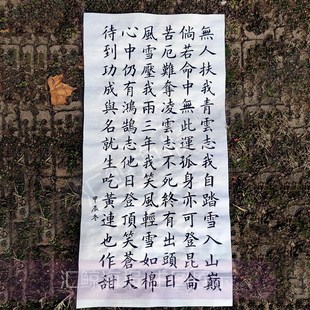 無人扶我青雲志我自踏雪入山巔
倘若命中無此運孤身亦可登昆侖
苦厄難奪凌雲志不死終有出頭日
風雪壓我兩三年我笑風輕雪如棉
心中仍有鴻鵠志他日登頂笑蒼天
待到功成與名就生吃黃連也作甜
甲辰冬